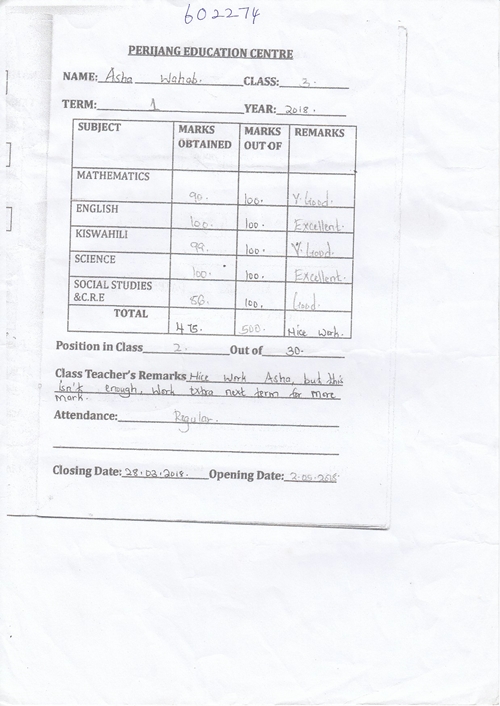 602274
PERIJANG EDUCATION CENTRE
NAME: Asha Wahab. CLASS: 3.
TERM: 1 YEAR: 2018.
SUBJECT MARKS OBTAINED MARKS OUT OF REMARKS
MATHEMATICS 90. 100. V. Good.
ENGLISH 100. 100. Excellent.
KISWAHILI 99. 100. V. Good.
SCIENCE 100. 100. Excellent.
SOCIAL STUDIES &C.R.E 86. 100. Good.
TOTAL 475. 500. Nice Work.
Position in Class 2. Out of 30.
Class Teacher's Remarks Nice Work Asha, but this
isn't enough, work extra next term for more
mark.
Attendance: Regular.
Closing Date: 28.03.2018. Opening Date: 2.05.2018.